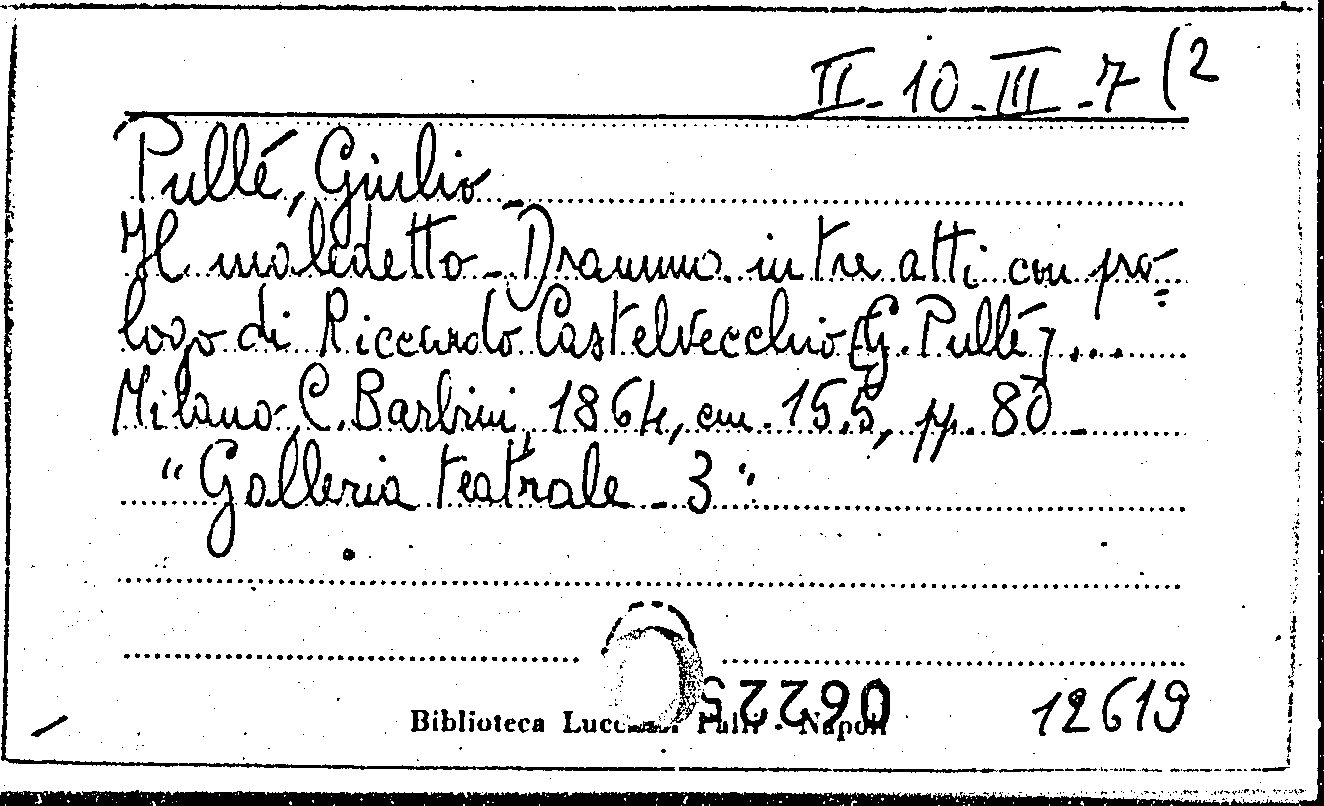 II-10-III-7(2
Pullé, Giulio -
Il maledetto - Dramma in tre atti con pro=
logo di Riccardo Castelvecchio [G. Pullé] ...
Milano, C. Barbini, 1864, cm. 15,5, pp. 80 -
"Galleria teatrale - 3"
Biblioteca - Napoli
12619